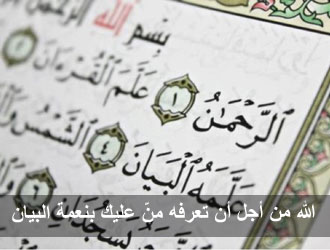 بِسْمِ ٱللَّهِ ٱلرَّحْمَٰنِ
ٱلرَّحْمَٰنُ ١ عَلَّمَ ٱلْقُرْءَانَ ٢
عَلَّمَهُ ٱلْبَيَانَ ٤ ٱلشَّمْسُ
يَسْجُدَانِ ٦
الله من أجل أن تعرفه منّ عليك بنعمة البيان